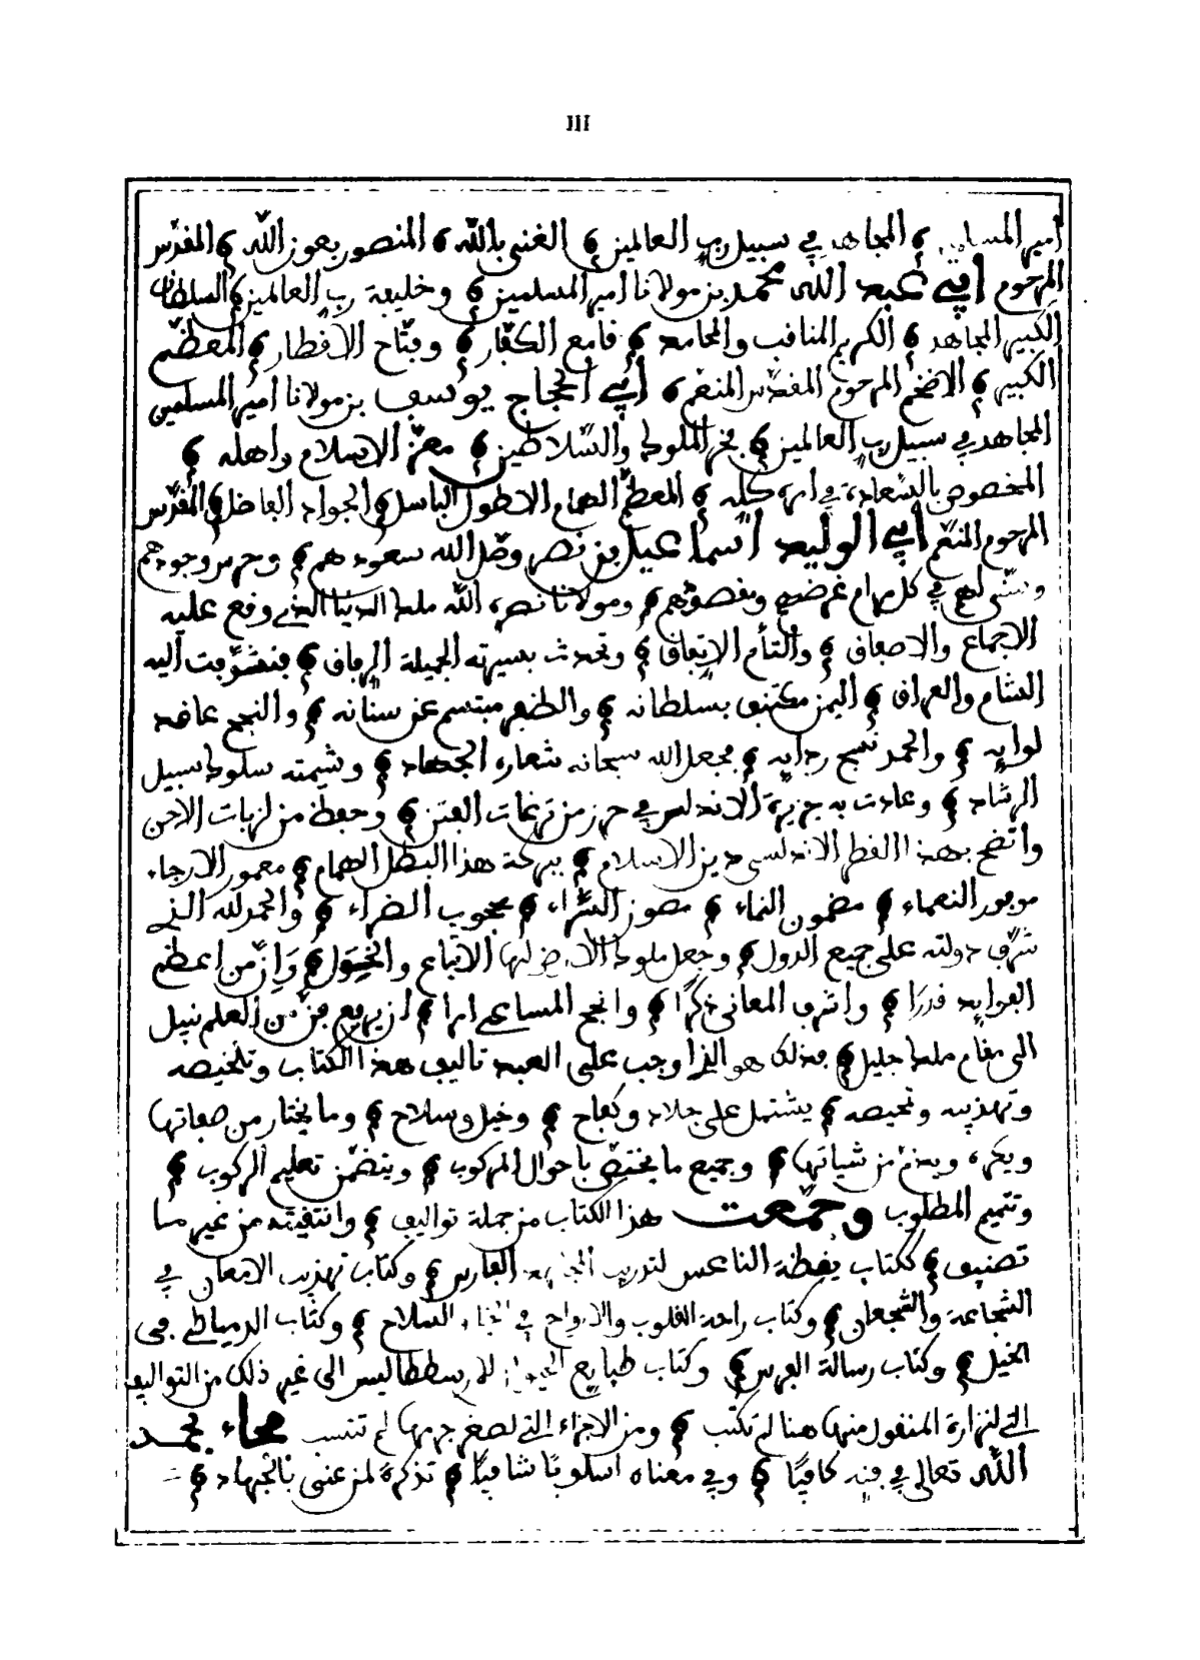 III
أمير المسلمين المجاهد في سبيل رب العالمين الغني بالله المنصور بعون الله المقدس
المرحوم أبي عبد الله محمد بن مولانا أمير المسلمين وخليفة رب العالمين السلطان
الكبير المجاهد الكريم المناقب والمحامد قامع الكفار وفتاح الاقطار المعظم
الكبير الافخم المرحوم المقدس المنعم أبي الحجاج يوسف بن مولانا أمير المسلمين
المجاهد في سبيل رب العالمين فخر الملوك والسلاطين معز الاسلام واهله
المخصوص بالسعادة في امره كله المعظم الهمام الاطول الباسل الجواد الفاضل المقدس
المرحوم المنعم أبي الوليد اسماعيل بن نصر وصل الله سعودهم وحرس وجودهم
وسنى لهم في كل مرام غرضهم ومقصودهم ومولانا نصره الله ملك الدنيا الذي وقع عليه
الاجماع والاصفاق والتأم الاتفاق وتحدث بسيرته الجميلة الرفاق فتشوفت اليه
الشام والعراق اليمن مكتنف بسلطانه والظفر مبتسم عن سنانه والنجح عاقد
لوايه والحمد نسج ردايه فجعل الله سبحانه شعاره الجهاد وشيمته سلوك سبيل
الرشاد وعادت به جزيرة الاندلس في حرز من نزغات الفتن وحفظ من لزبات الاحن
واتضح بهذا القطر الاندلسي دين الاسلام ببركة هذا البطل الهمام معمور الارجاء
موفور النعماء مضمون النماء مصون السراء محجوب الضراء والحمد لله الذي
شرف دولته على جميع الدول وجعل ملوك الارض لها الاتباع والخول وإن من اعظم
الفوايد قدرا واشرف المعاني ذكرا وانجح المساعي امرا ان يرفع فن من العلم نبيل
الى مقام ملك جليل فذلك هو الذي اوجب على العبد تاليف هذا الكتاب وتلخيصه
وتهذيبه وتمحيصه يشتمل على جلاد وكفاح وخيل وسلاح وما يختار من صفاتها
ويكره ويذم من شياتها وجميع ما يختص باحوال المركوب ويتضمن تعليم الركوب
وتتميم المطلوب وجمعت هذا الكتاب من جملة تواليف وانتقيته من غير ما
تصنيف ككتاب يقظة الناعس لتدريب المجاهد الفارس وكتاب تهذيب الامعان في
الشجاعة والشجعان وكتاب راحة القلوب والارواح في الخيل والسلاح وكتاب الدمياطي في
الخيل وكتاب رسالة الفرس وكتاب طبايع الحيوان لارسططاليس الى غير ذلك من التواليف
التي لنزارة المنقول منها هنا لم تكتب ومن الاجزاء التي لصغر جرمها لم تنسب فجاء بحمد
الله تعالى في فنه كافيا وفي معناه اسلوبا شافيا تذكرة لمن عنى بالجهاد